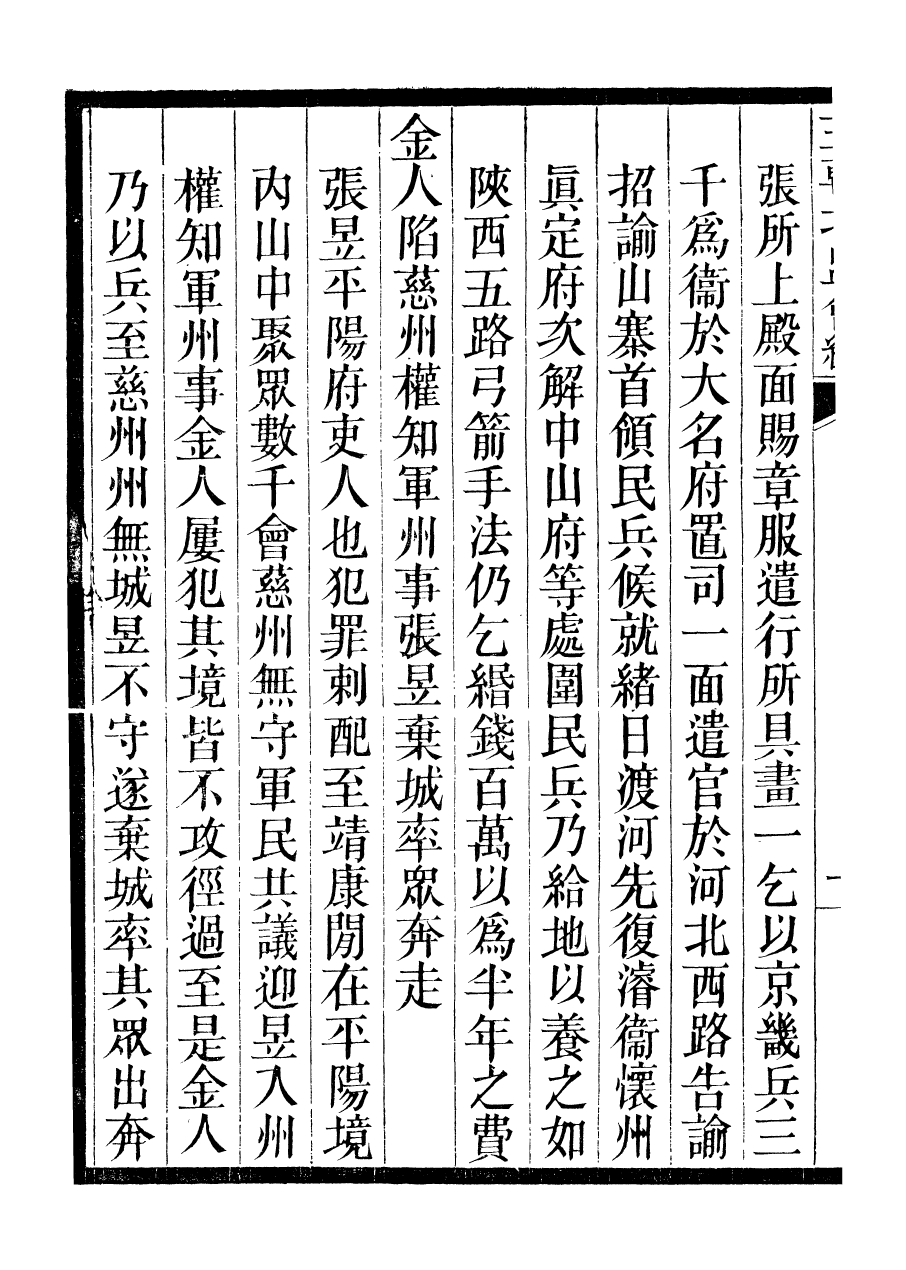 張所上殿面賜章服遣行所具畫一乞以京畿兵三
千爲衞於大名府置司一面遣官於河北西路告諭
招諭山寨首領民兵候就緒日渡河先復濬衞懷州
眞定府次解中山府等處圍民兵乃給地以養之如
陝西五路弓箭手法仍乞緡錢百萬以爲半年之費
金人陷慈州權知軍州事張昱棄城率眾奔走
張昱平陽府吏人也犯罪刺配至靖康閒在平陽境
内山中聚眾數千會慈州無守軍民共議迎昱入州
權知軍州事金人屢犯其境皆不攻徑過至是金人
乃以兵至慈州州無城昱不守遂棄城率其眾出奔